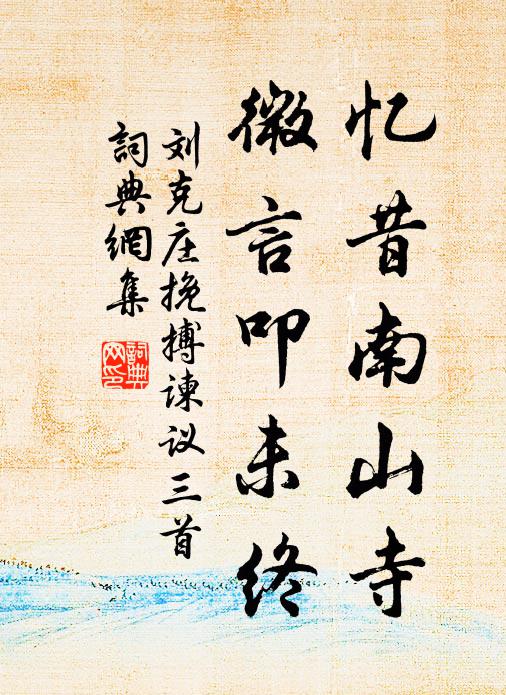 忆昔南山寺
微言叩未终
刘克庄挽搏谏议三首
詞典網集
詞典网印